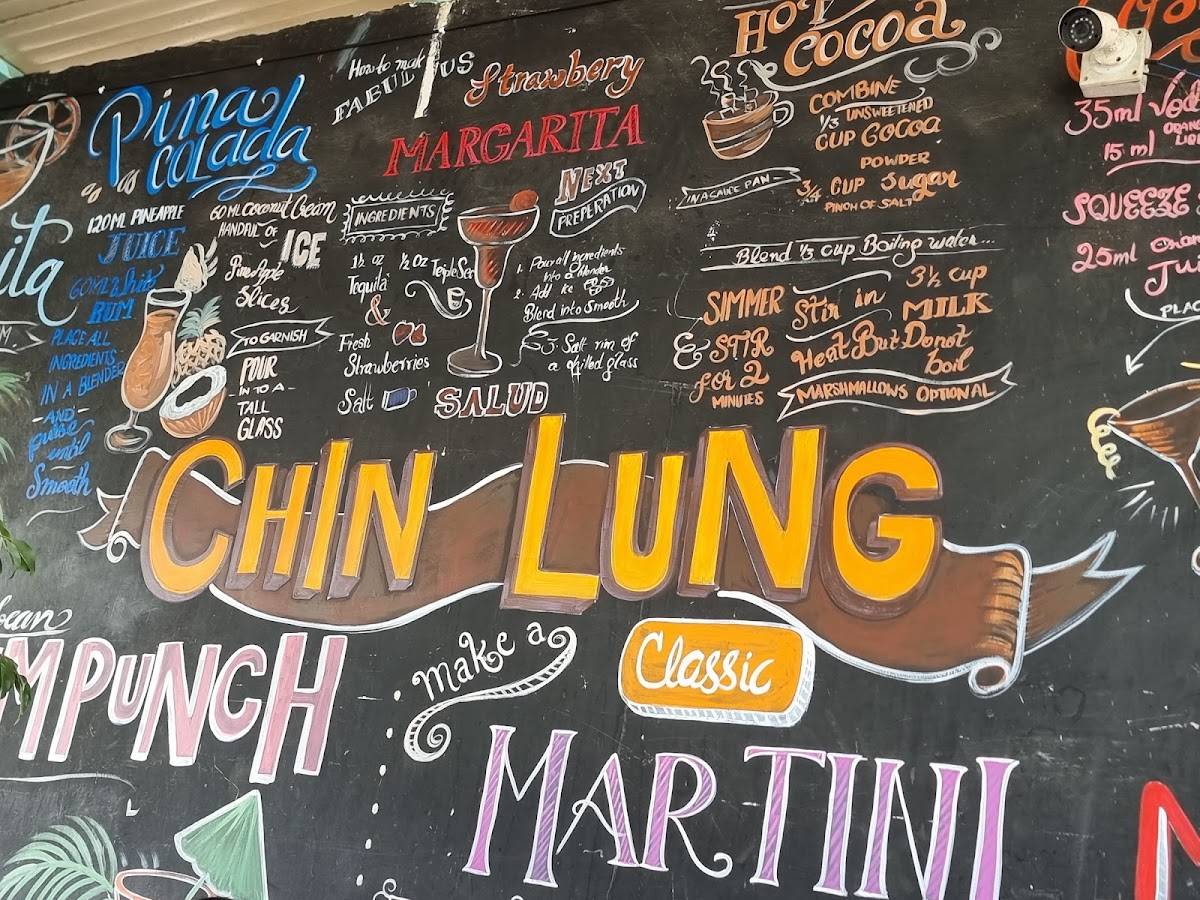 Pina
colada
120ML PINEAPPLE
JUICE
60ML White
RUM
PLACE ALL
INGREDIENTS
IN A BLENDER
-AND-
pulse
until
Smooth
60 ML Coconut Cream
HANDFUL OF
ICE
Pineapple
Slices
TO GARNISH
POUR
-INTO A-
TALL
GLASS
How to make
Strawbery
MARGARITA
INGREDIENTS
1½ oz
Tequila
&
½ Oz TripleSec
Fresh
Strawberries
Salt
NEXT
PREPARATION
1. Pour all ingredients
into a blender
2. Add ice
Blend into Smooth
3. Salt rim of
a chilled glass
SALUD
HOT
COCOA
COMBINE
⅓ UNSWEETENED
CUP COCOA
POWDER
¾ CUP Sugar
PINCH OF SALT
IN A SAUCE PAN-
Blend ⅓ cup Boiling water...
SIMMER
& STIR
for 2
MINUTES
Stir in 3½ cup
MILK
Heat But Do not
boil
MARSHMALLOWS OPTIONAL
35ml
15 ml
SQUEEZE
25ml
ita
CHIN LUNG
PUNCH
make a
Classic
MARTINI